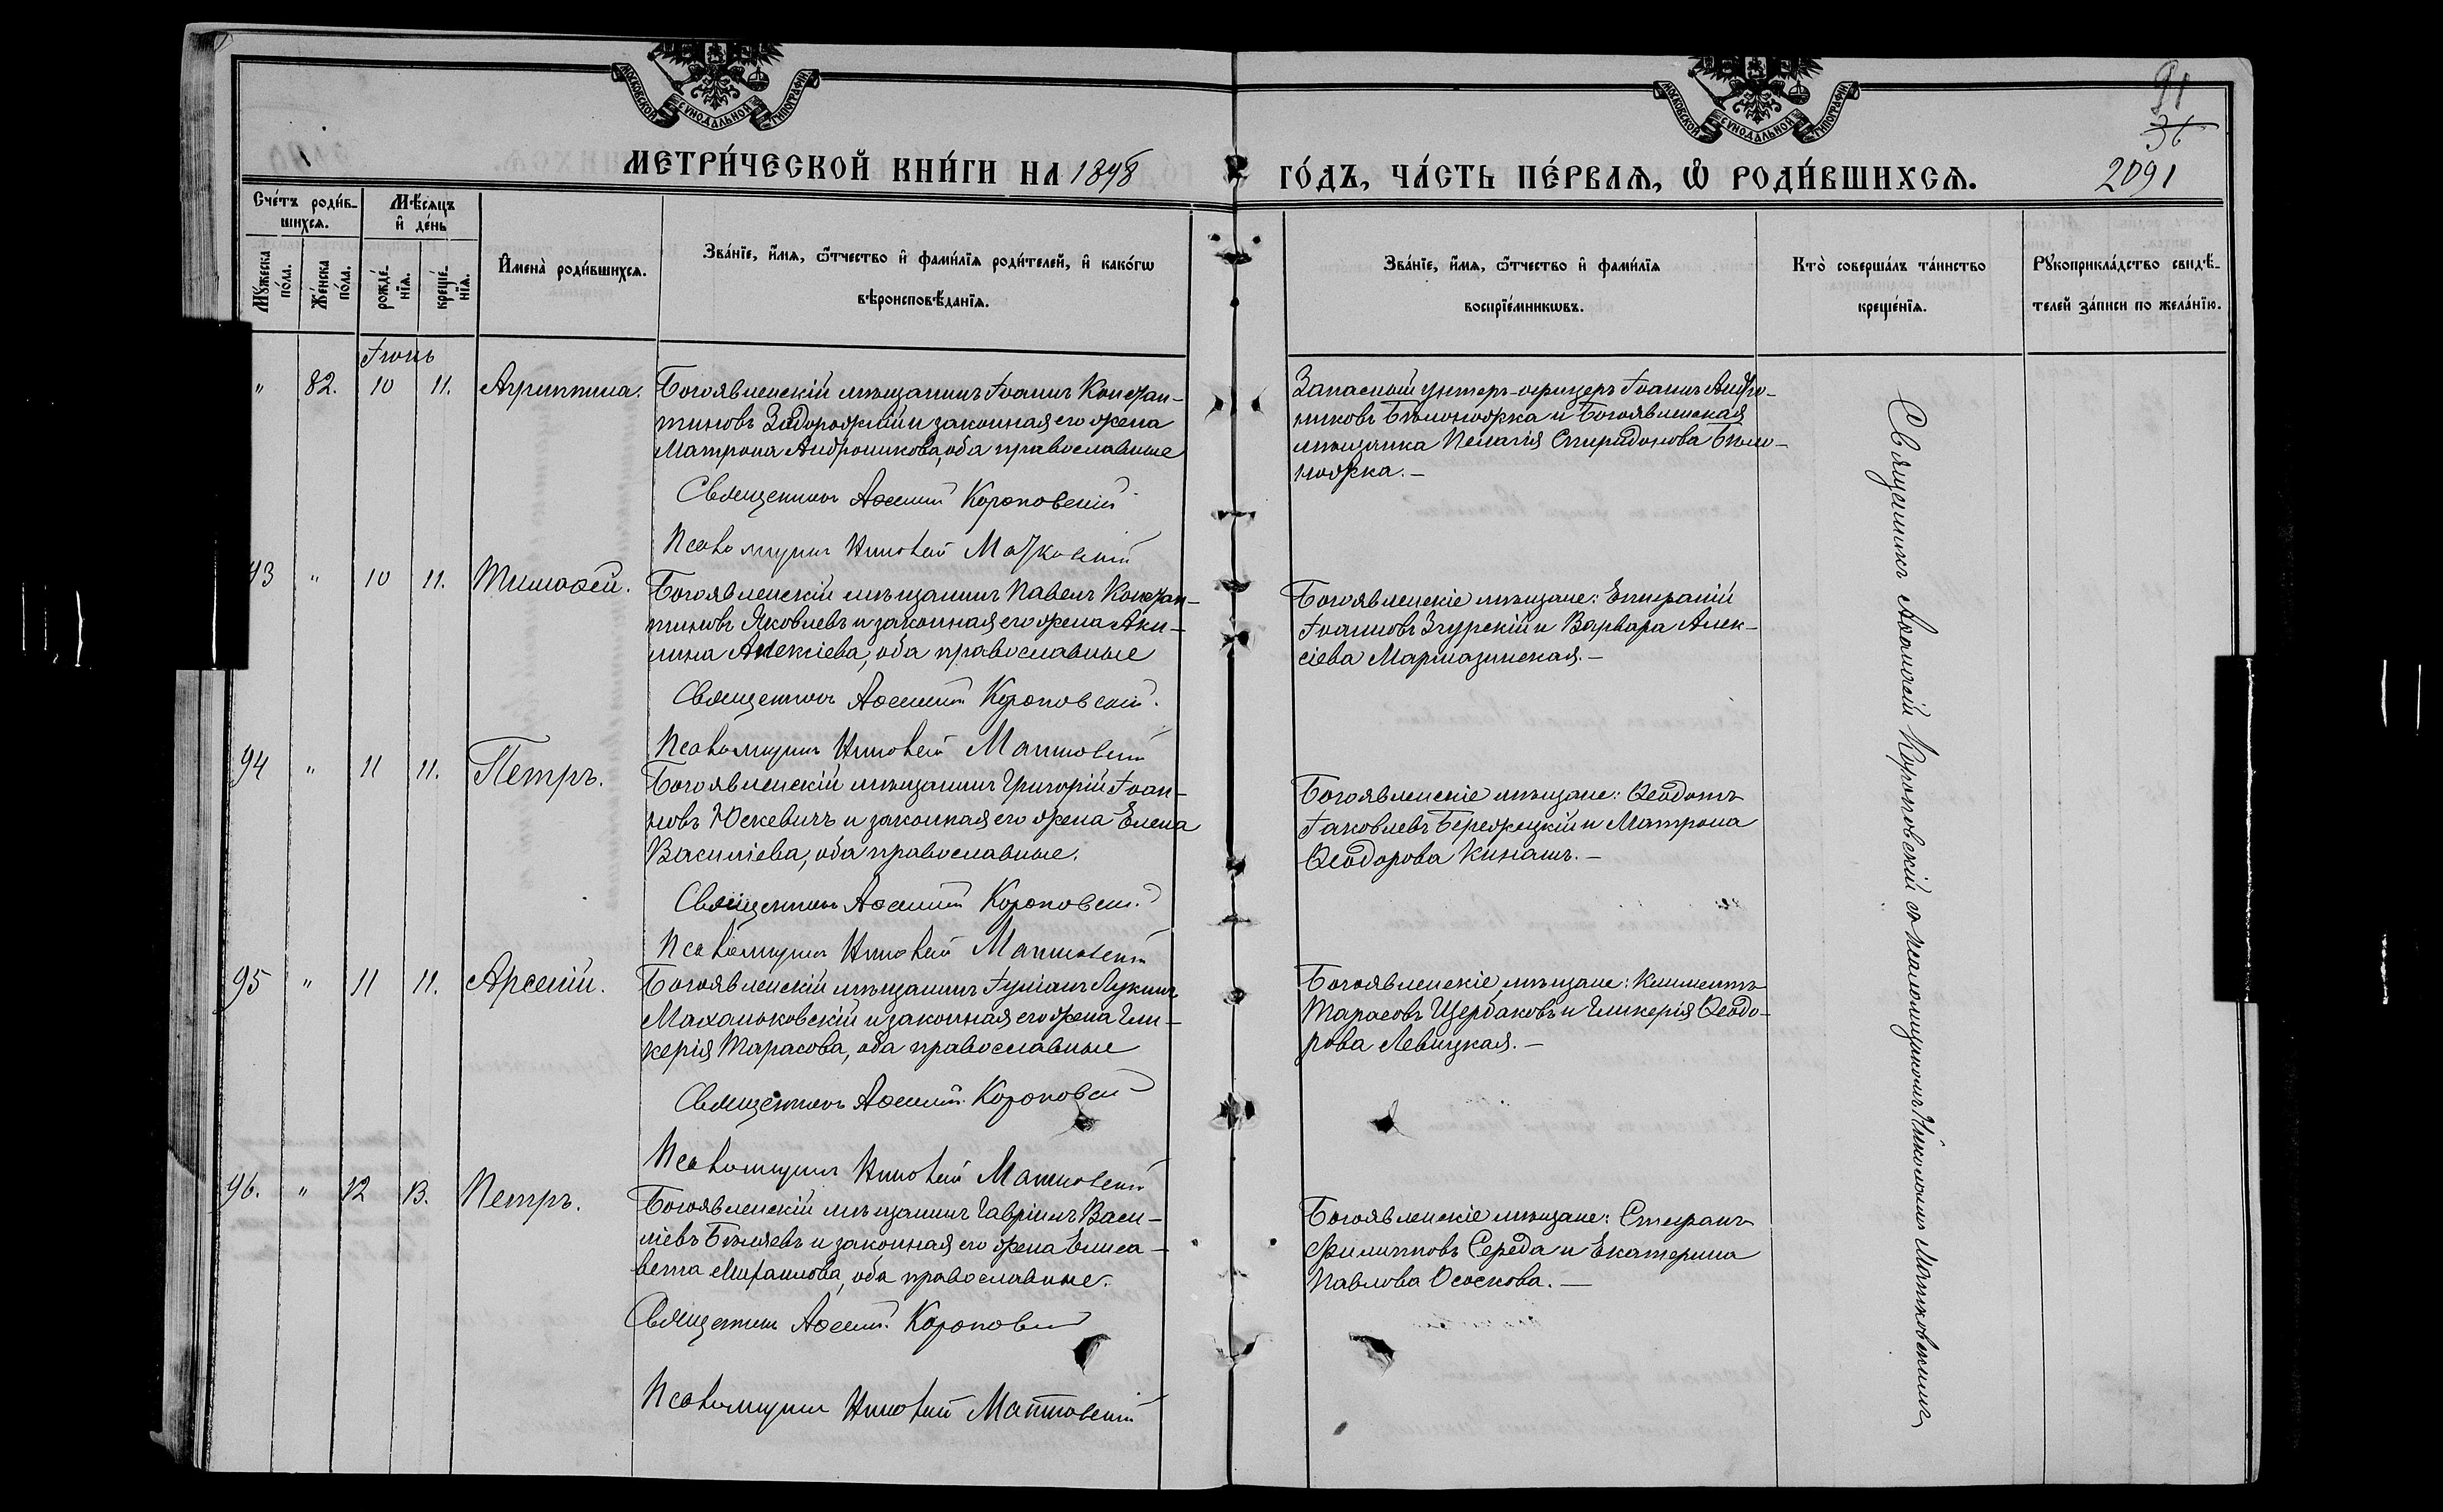 МОСКОВСКОЙ СѴНОДАЛЬНОЙ ТИПОГРАФІИ
МОСКОВСКОЙ СѴНОДАЛЬНОЙ ТИПОГРАФІИ
91
36
2091
МЕТРИ́ЧЕСКОЙ КНИ́ГИ НА 1898
ГО́ДЪ, ЧА́СТЬ ПЕ́РВАѦ, Ѽ РОДИ́ВШИХСѦ.
Сче́тъ роди́в-
шихсѧ.
Мѣ́сѧцъ
и҆ де́нь
Мꙋ́жеска
по́ла.
Же́нска
по́ла.
рожде́-
нїѧ.
креще́-
нїѧ.
И҆мена̀ роди́вшихсѧ.
Зва́нїе, и҆́мѧ, ѿ́чество и҆ фами́лїѧ роди́телей, и҆ како́гѡ
вѣроисповѣ́данїѧ.
Зва́нїе, и҆́мѧ, ѿ́чество и҆ фами́лїѧ
воспрїе́мникѡвъ.
Кто̀ соверша́лъ та́инство
креще́нїѧ.
Рꙋкоприкла́дство свидѣ́-
телей за́писи по жела́нїю.
Іюнь
" 82. 10 11. Агриппина.
Богоявленскій мѣщанинъ Іоаннъ Констан-
тиновъ Задорожній и законная его жена
Матрона Андроникова, оба православные
Священникъ Коропов­скій
Псаломщикъ Николай Матковскій
Запасный унтеръ-офицеръ Іоаннъ Андро-
никовъ Бѣлоножка и Богоявленская
мѣщанка Пелагія Спиридонова Бѣло-
ножка. –
93 " 10 11. Тимоѳей.
Богоявленскій мѣщанинъ Павелъ Констан-
тиновъ Яковлевъ и законная его жена Аки-
лина Алексіева, оба православные
Священникъ Короповскій.
Псаломщикъ Николай Матковскій
Богоявленскіе мѣщане: Епифаній
Іоанновъ Згурскій и Варвара Алек-
сіева Мармазинская. –
94 " 11 11. Петръ.
Богоявленскій мѣщанинъ Григорій Іоан-
новъ Юскевичъ и законная его жена Елена
Василіева, оба православные.
Священникъ Короповскій
Псаломщикъ Николай Матковскій
Богоявленскіе мѣщане: Ѳеодотъ
Іаковлевъ Бережецкій и Матрона
Ѳеодорова Кинашъ. –
95 " 11 11. Арсеній.
Богоявленскій мѣщанинъ Іуліанъ Лукинъ
Маханьковскій и законная его жена Гли-
керія Тарасова, оба православные
Священникъ Короповскій
Псаломщикъ Николай Матковскій
Богоявленскіе мѣщане: Климентъ
Тарасовъ Щербаковъ и Гликерія Ѳеодо-
рова Левицкая. –
96. " 12 13. Петръ.
Богоявленскій мѣщанинъ Гавріилъ Васи-
ліевъ Бѣляевъ и законная его жена Елиса-
вета Михаилова, оба православные.
Священникъ Короповскій
Псаломщикъ Николай Матковскій
Богоявленскіе мѣщане: Стефанъ
Филипповъ Середа и Екатерина
Павлова Ососкова. –
Священникъ Короповскій съ псаломщикомъ Николаемъ Матковскимъ